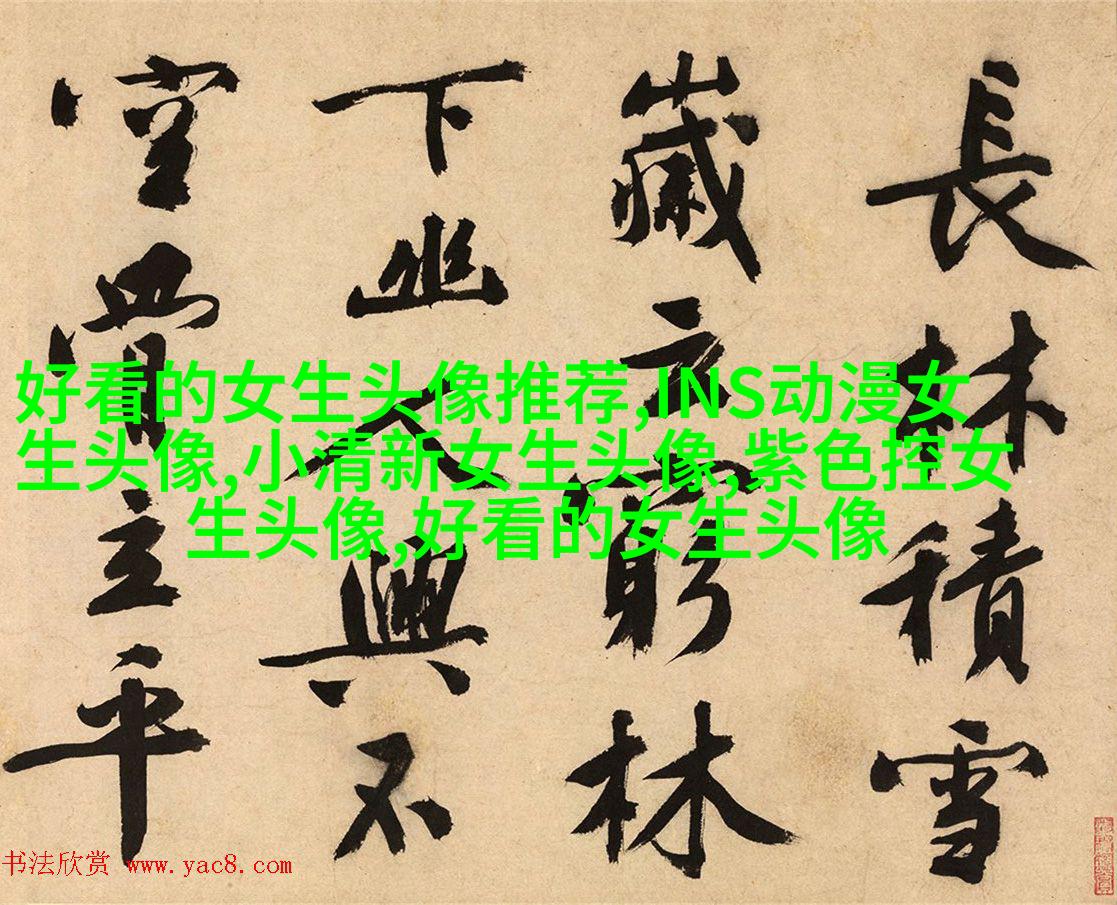 長林積雪
嵗云窮林
下幽人興不
空骨立平
好看的女生头像推荐,INS动漫女
生头像,小清新女生头像,紫色控女
生头像,好看的女生头像
书法欣赏 www.yac8.com